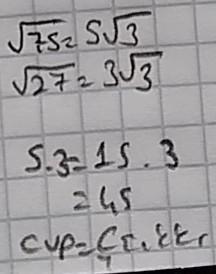 √75 = 5√3
√27 = 3√3
5.3 = 15.3
= 45
CVP =